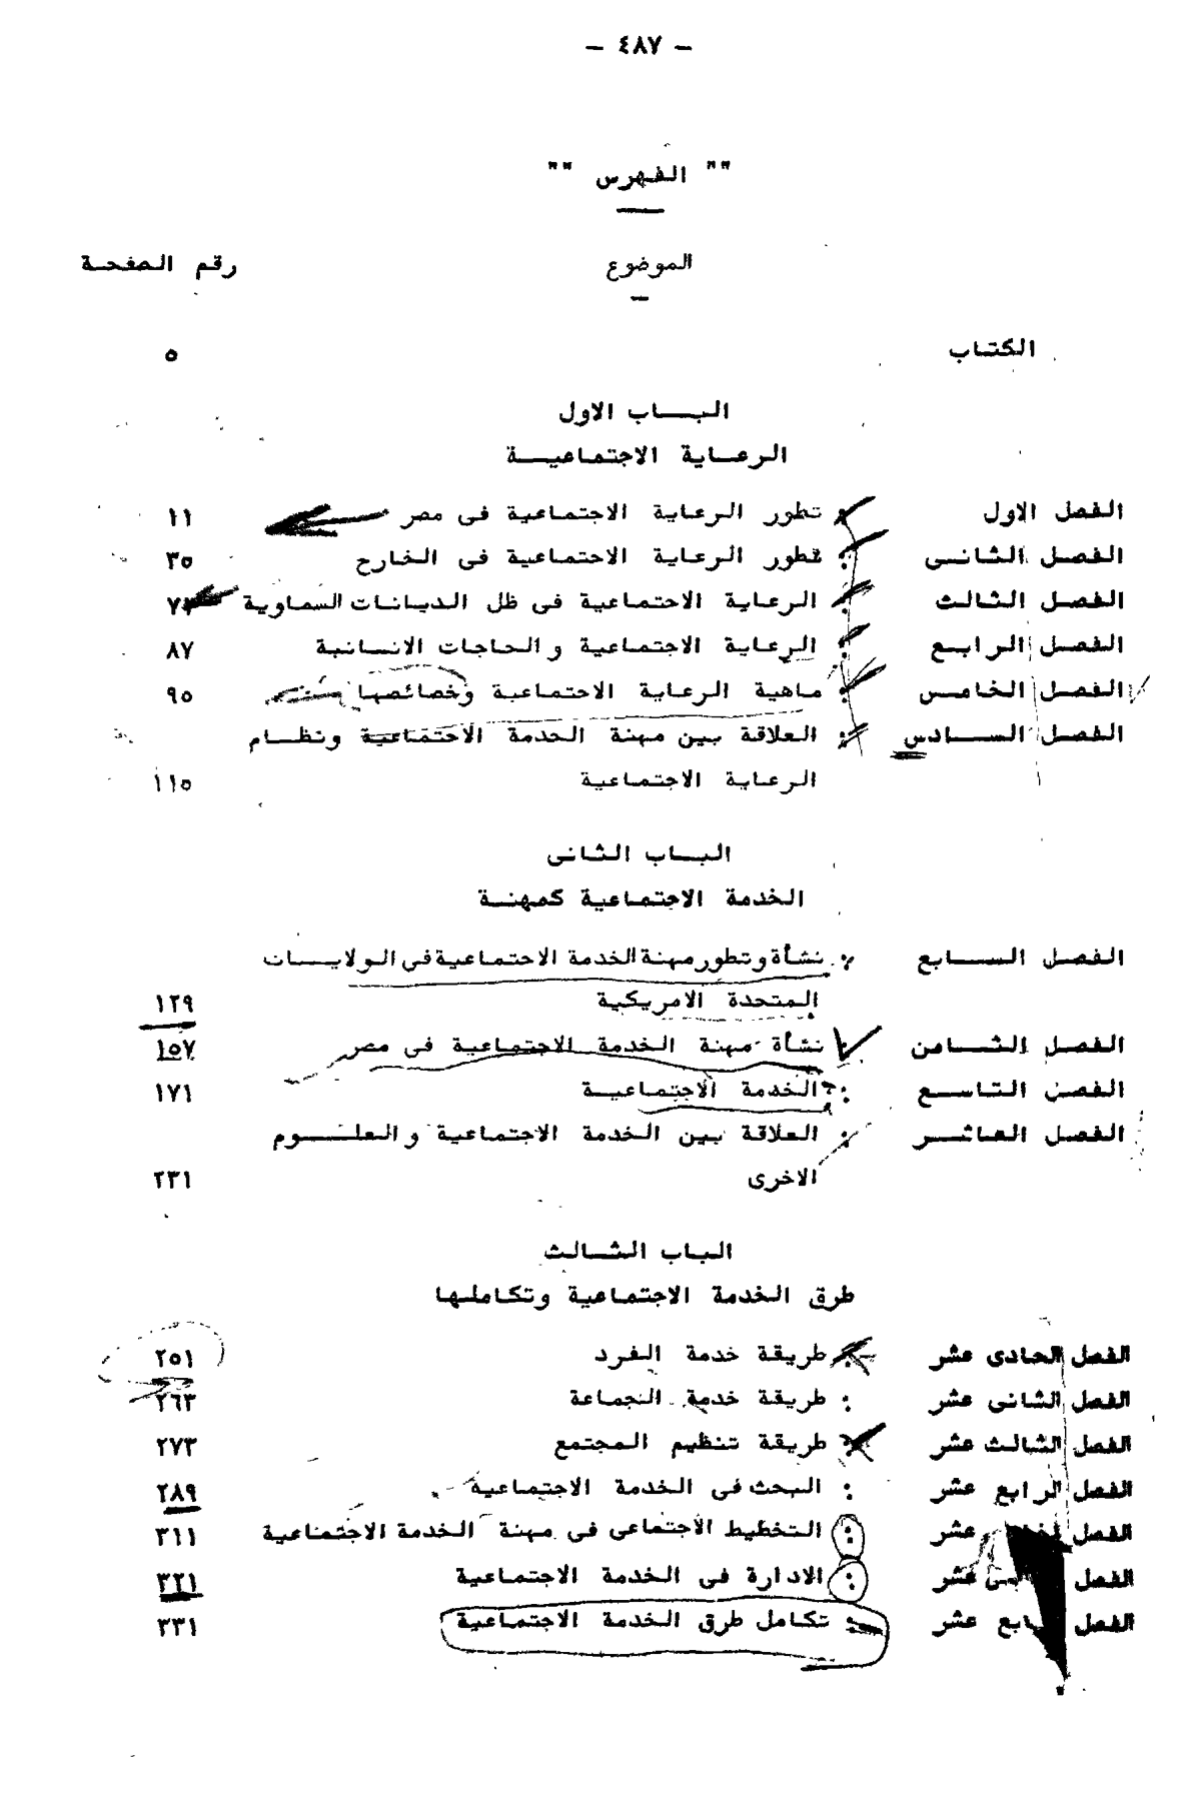 - ٤٨٧ -
"" الفهرس ""
الموضوع رقم الصفحة
الكتاب ٥
الباب الاول
الرعاية الاجتماعية
الفصل الاول : تطور الرعاية الاجتماعية فى مصر ١١
الفصل الثانى : تطور الرعاية الاجتماعية فى الخارج ٣٥
الفصل الثالث : الرعاية الاجتماعية فى ظل الديانات السماوية
الفصل الرابع : الرعاية الاجتماعية والحاجات الانسانية ٨٧
الفصل الخامس : ماهية الرعاية الاجتماعية وخصائصها ٩٥
الفصل السادس : العلاقة بين مهنة الخدمة الاجتماعية ونظام
الرعاية الاجتماعية ١١٥
الباب الثانى
الخدمة الاجتماعية كمهنة
الفصل السابع : نشأة وتطور مهنة الخدمة الاجتماعية فى الولايات
المتحدة الامريكية ١٢٩
الفصل الثامن : نشأة مهنة الخدمة الاجتماعية فى مصر ١٥٧
الفصل التاسع : الخدمة الاجتماعية ١٧١
الفصل العاشر : العلاقة بين الخدمة الاجتماعية والعلوم
الاخرى ٢٣١
الباب الثالث
طرق الخدمة الاجتماعية وتكاملها
الفصل الحادى عشر : طريقة خدمة الفرد ٢٥١
الفصل الثانى عشر : طريقة خدمة الجماعة ٢٦٣
الفصل الثالث عشر : طريقة تنظيم المجتمع ٢٧٣
الفصل الرابع عشر : البحث فى الخدمة الاجتماعية ٢٨٩
الفصل عشر : التخطيط الاجتماعى فى مهنة الخدمة الاجتماعية ٣١١
الفصل عشر : الادارة فى الخدمة الاجتماعية ٣٢١
الفصل عشر : تكامل طرق الخدمة الاجتماعية ٣٣١